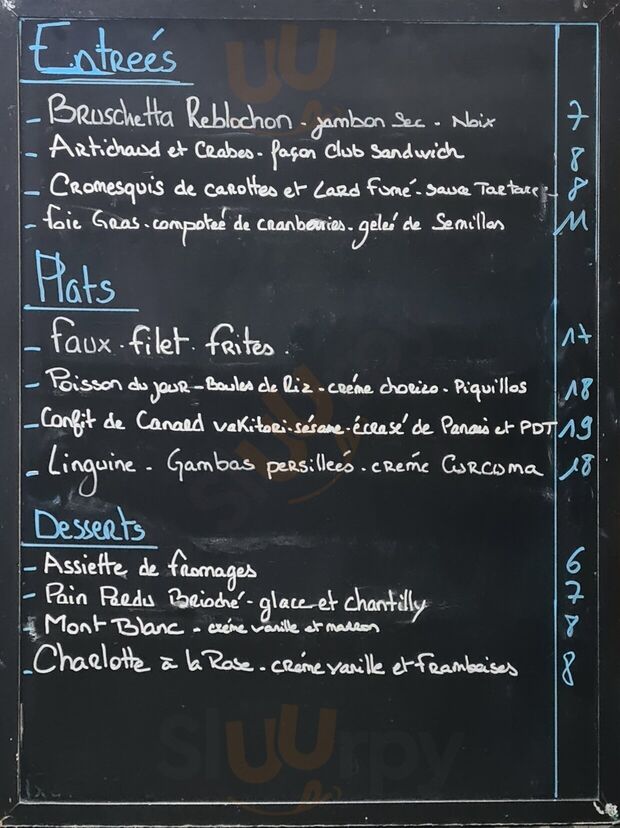 Entreés
- Bruschetta Reblochon - jambon Sec - Noix 7
- Artichaud et Crabes - façon Club Sandwich 8
- Cromesquis de carottes et Lard Fumé - sauce Tartare - 8
- foie Gras - compoteé de cranberries - geleé de Semillon 11
Plats
- faux - filet - frites. 17
- Poisson du jour - Boules de Riz - créme chorizo - Piquillos 18
- Confit de Canard yakitori - sésame - écrasé de Panais et PDT 19
- Linguine - Gambas persilleés - creme Curcuma 18
Desserts
- Assiette de fromages 6
- Pain Perdu Brioché - glace et chantilly 7
- Mont Blanc - créme vanille et marron 8
- Charlotte à la Rose - créme vanille et Framboises 8
sluurpy